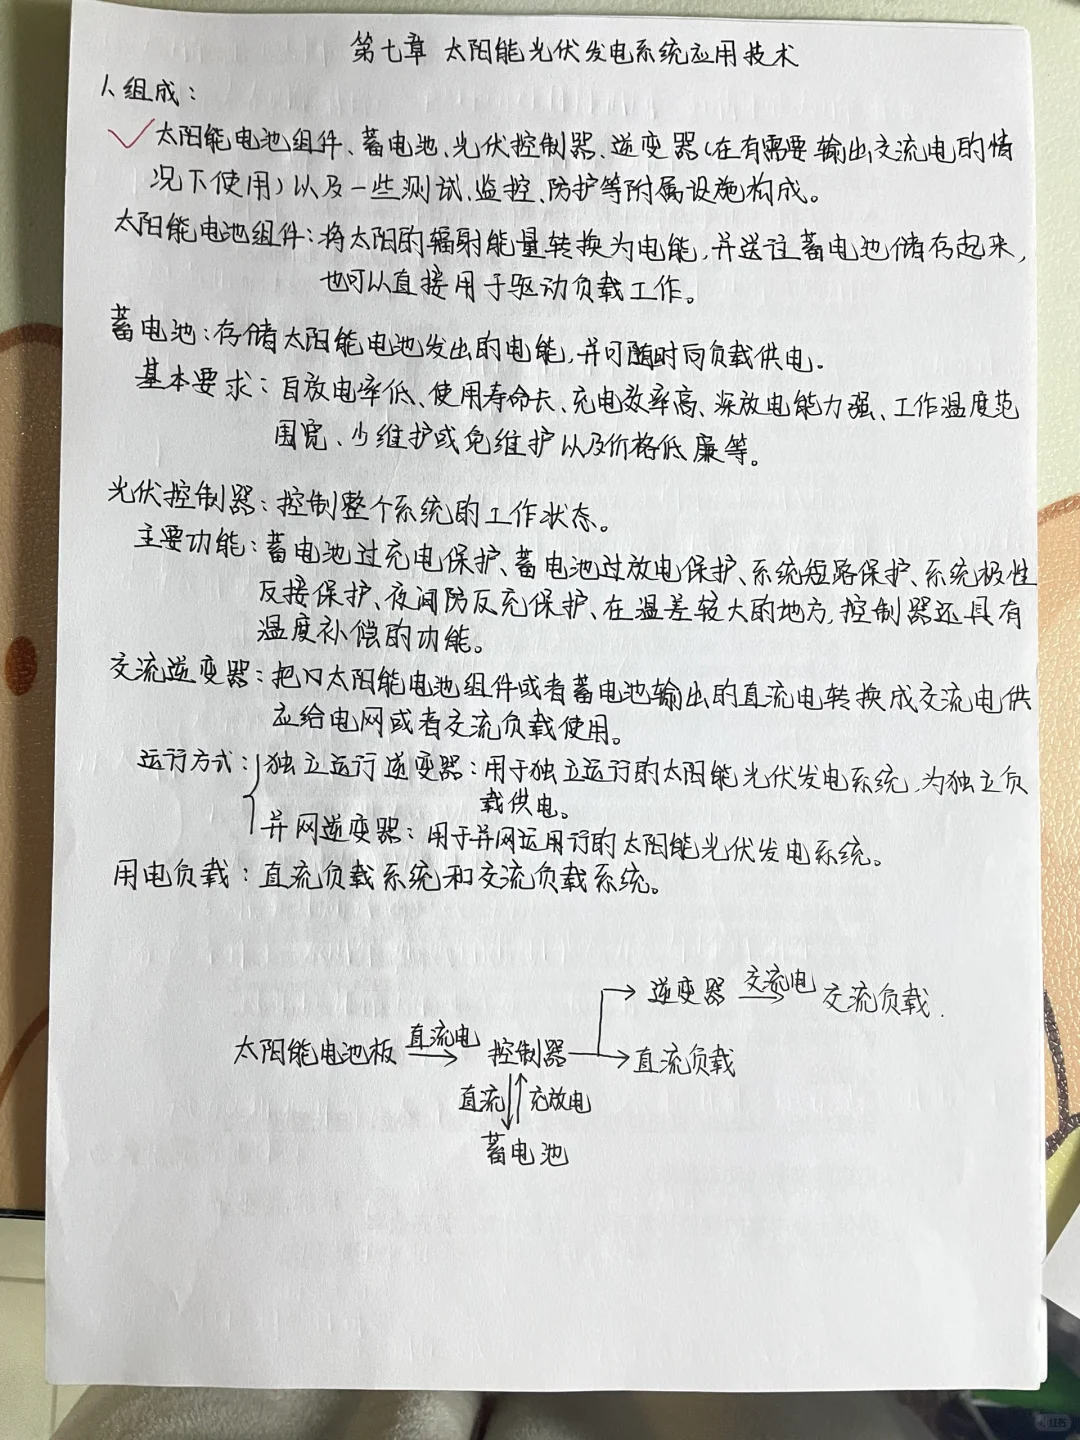 第七章 太阳能光伏发电系统应用技术
1、组成：
太阳能电池组件、蓄电池、光伏控制器、逆变器（在有需要输出交流电的情
况下使用）以及一些测试、监控、防护等附属设施构成。
太阳能电池组件：将太阳的辐射能量转换为电能，并送往蓄电池储存起来，
也可以直接用于驱动负载工作。
蓄电池：存储太阳能电池发出的电能，并可随时向负载供电。
基本要求：自放电率低、使用寿命长、充电效率高、深放电能力强、工作温度范
围宽、少维护或免维护以及价格低廉等。
光伏控制器：控制整个系统的工作状态。
主要功能：蓄电池过充电保护、蓄电池过放电保护、系统短路保护、系统极性
反接保护、夜间防反充保护、在温差较大的地方，控制器还具有
温度补偿的功能。
交流逆变器：把太阳能电池组件或者蓄电池输出的直流电转换成交流电供
应给电网或者交流负载使用。
运行方式：独立运行逆变器：用于独立运行的太阳能光伏发电系统，为独立负
载供电。
并网逆变器：用于并网运用行的太阳能光伏发电系统。
用电负载：直流负载系统和交流负载系统。
逆变器 交流电 交流负载.
太阳能电池板 直流电 控制器 直流负载
直流 充放电
蓄电池